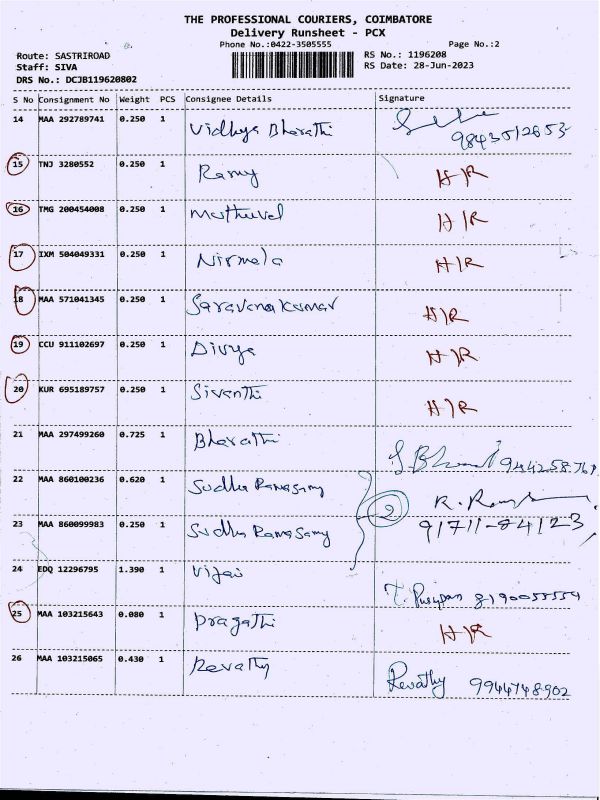 THE PROFESSIONAL COURIERS, COIMBATORE
Delivery Runsheet - PCX
Phone No.:0422-3505555 Page No.:2
Route: SASTRIROAD RS No.: 1196208
Staff: SIVA RS Date: 28-Jun-2023
DRS No.: DCJB119620802
S No Consignment No Weight PCS Consignee Details Signature
14 MAA 292789741 0.250 1 Vidhya Bharathi 9843512653
15 TNJ 3280552 0.250 1 Ramy H/R
16 TMG 200454008 0.250 1 Muthuvel H/R
17 IXM 504049331 0.250 1 Nirmala H/R
18 MAA 571041345 0.250 1 Saravanakumar H/R
19 CCU 911102697 0.250 1 Divya H/R
20 KUR 695189757 0.250 1 Sivanthi H/R
21 MAA 297499260 0.725 1 Bharathi
22 MAA 860100236 0.620 1 Sudha Ramasamy
2
23 MAA 860099983 0.250 1 Sudha Ramasamy 91711-84123
24 EDQ 12296795 1.390 1 Vijai
25 MAA 103215643 0.080 1 Pragathi H/R
26 MAA 103215065 0.430 1 Revathy Revathy 9944748902